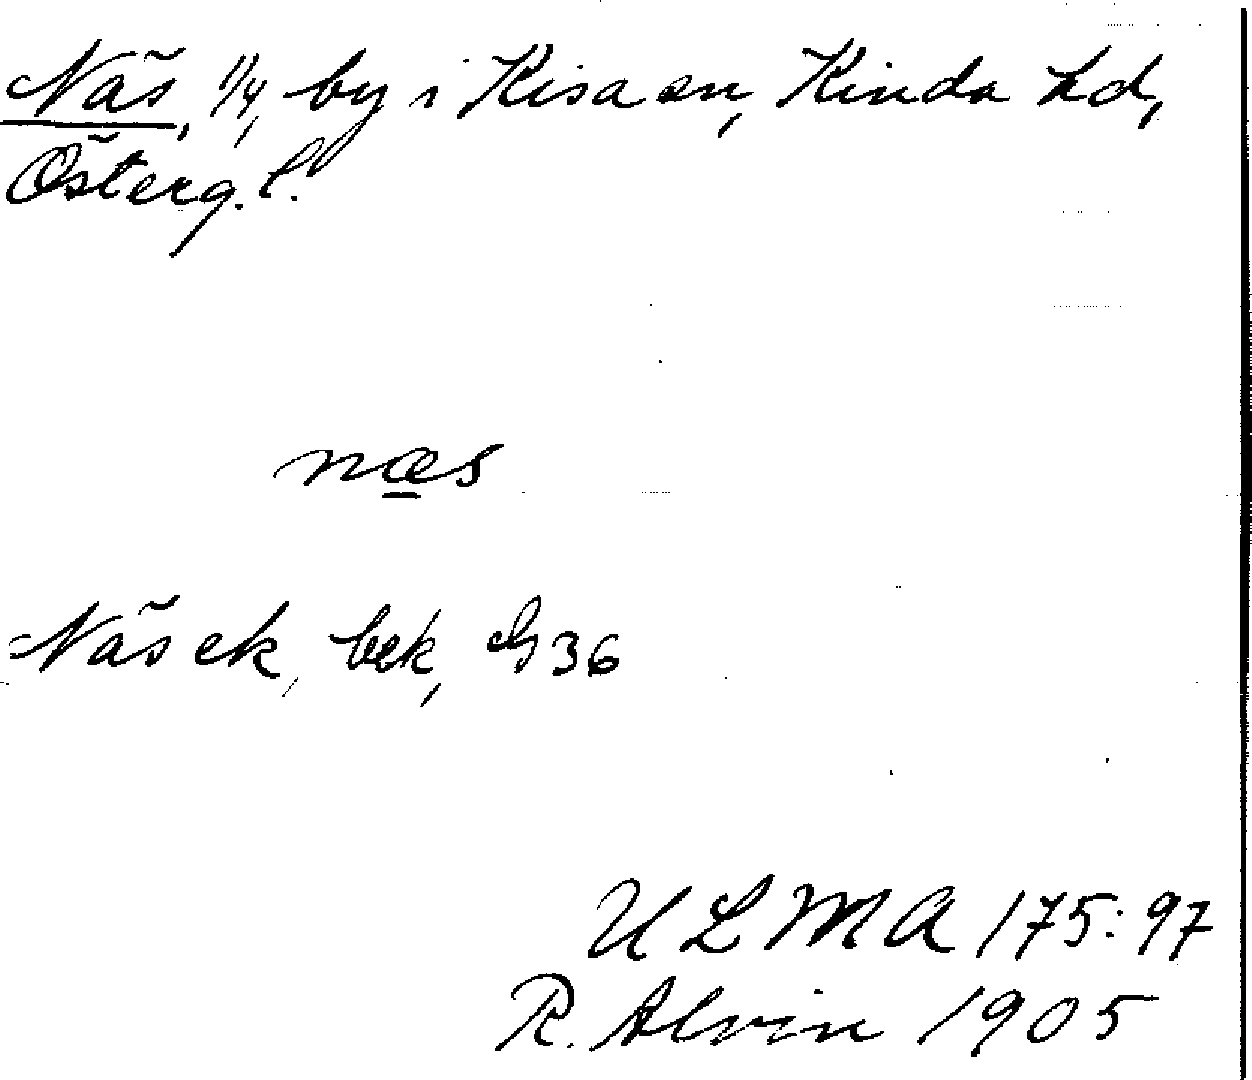 Näs, 1/4, by i Kisa sn, Kinda hd,
Österg. l.
næs
Näs ek, bek, G 36
ULMA 175:97
R. Alvin 1905